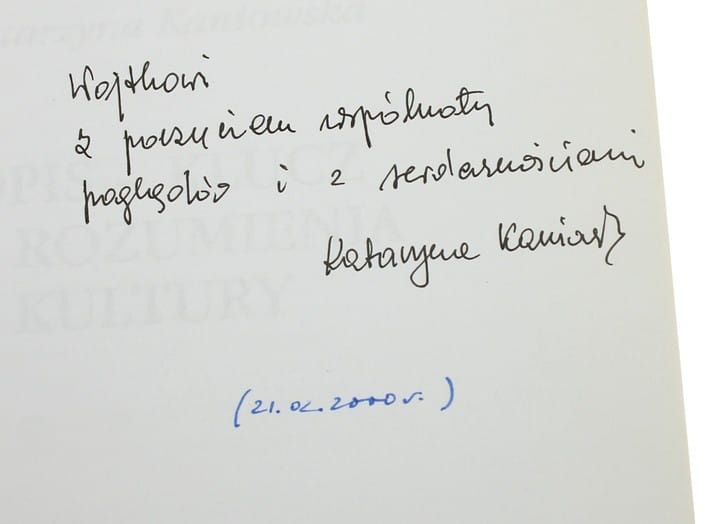 Katarzyna Kaniowska
OPIS - KLUCZ
ROZUMIENIA
KULTURY
Wojtkowi
z poczuciem wspólnoty
poglądów i z serdecznościami
Katarzyna Kaniowska
(21.02.2000 r.)